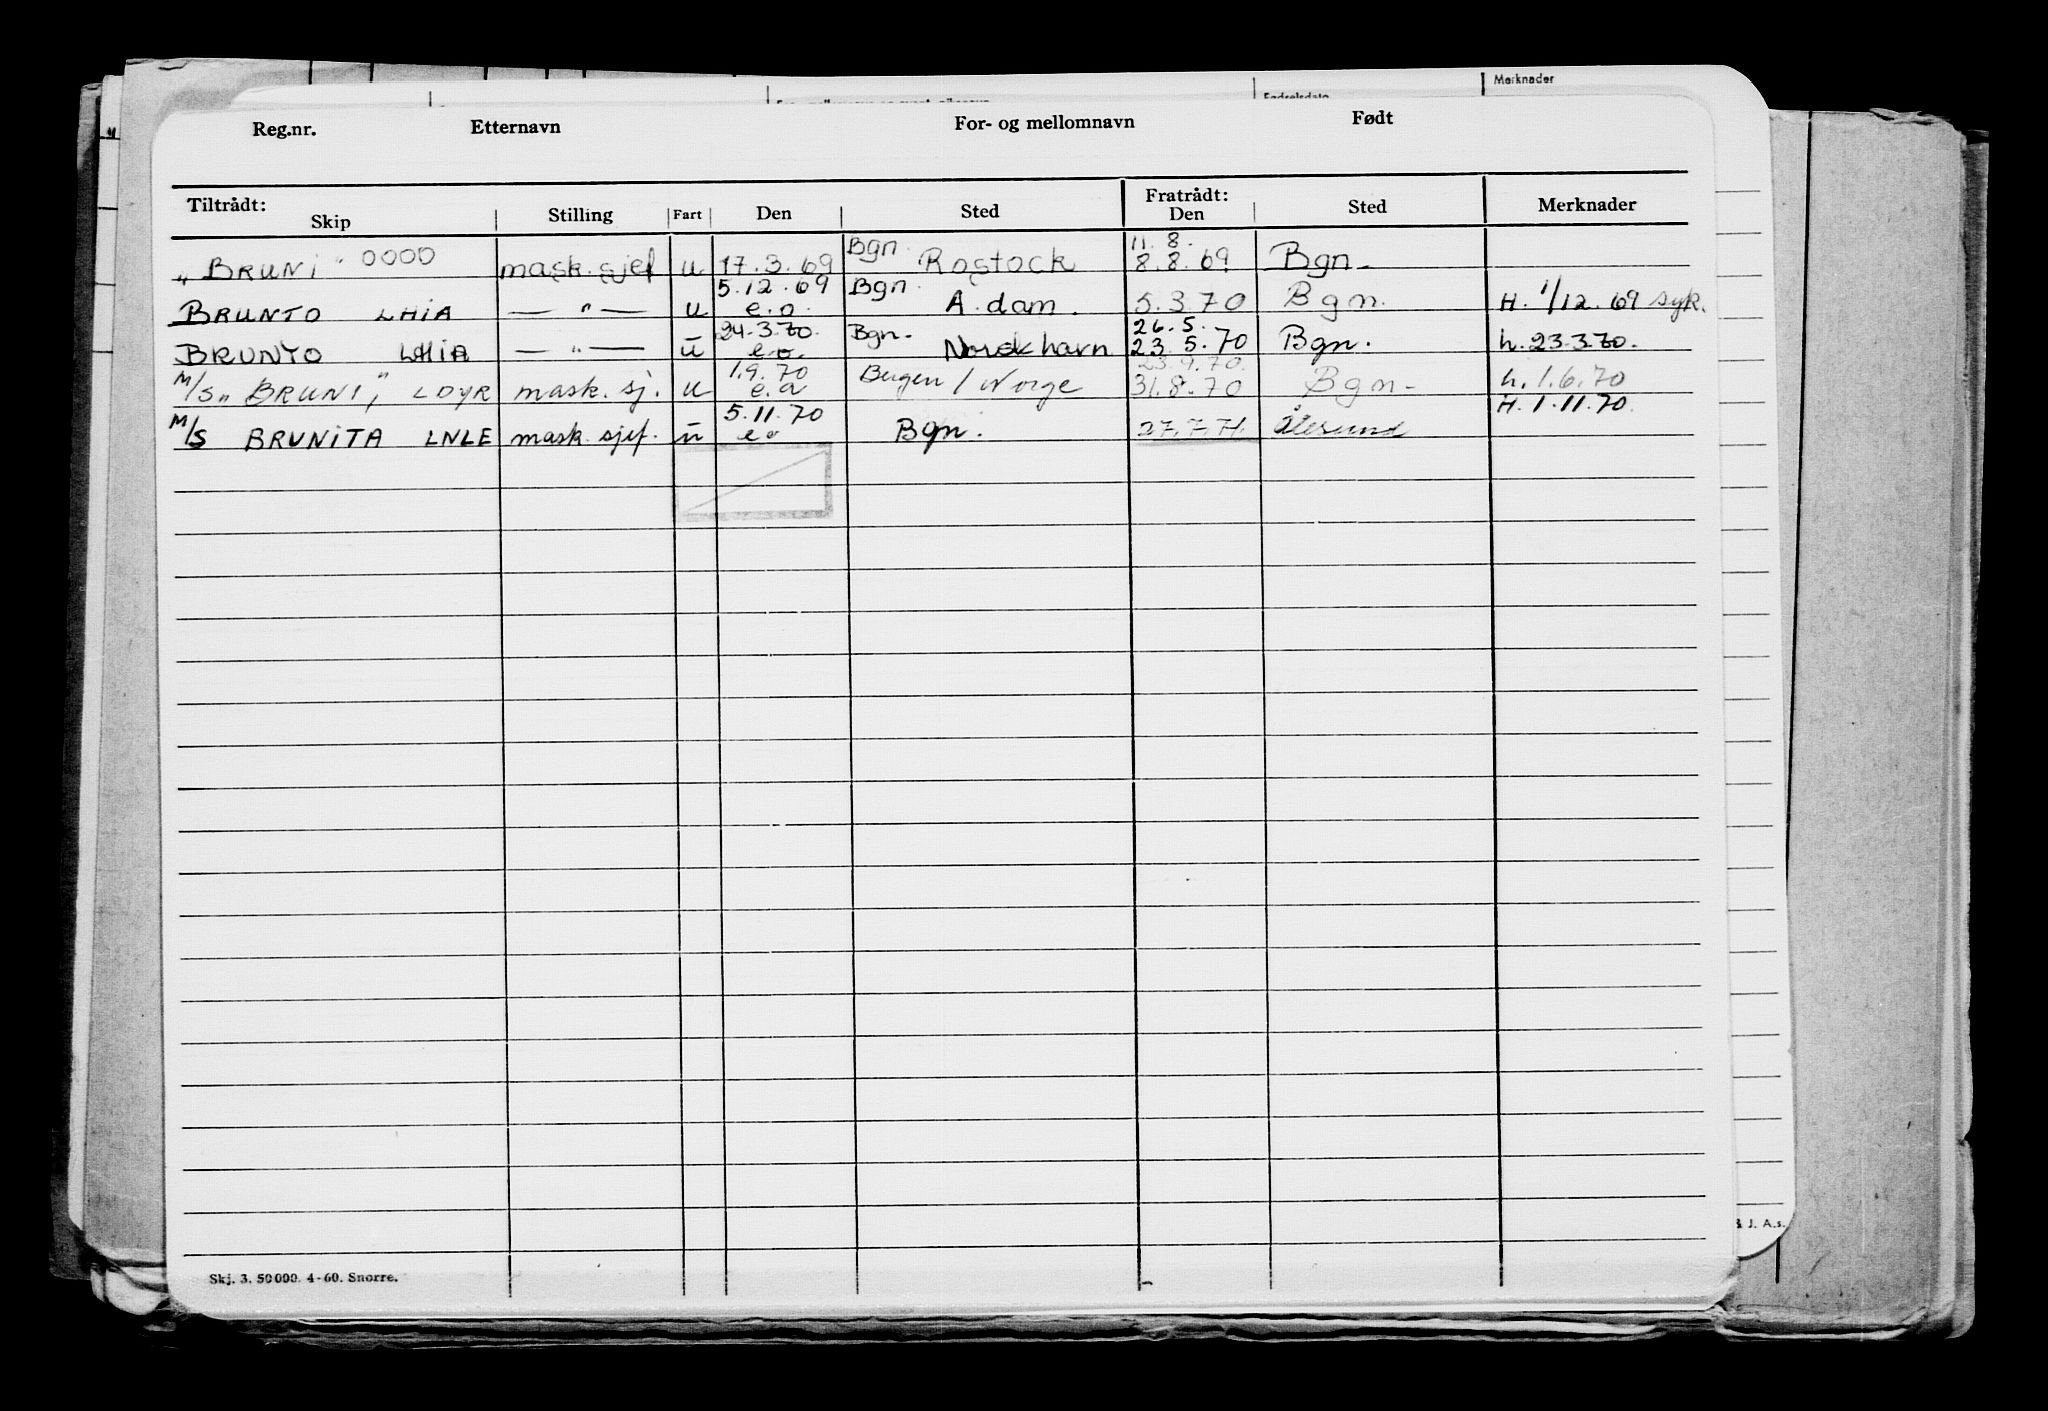 Merknader
Fødselsdato
Reg.nr. Etternavn For- og mellomnavn Født
Tiltrådt: Fratrådt:
Skip Stilling Fart Den Sted Den Sted Merknader
Bgn. 11.8.
"BRUNI" OOOO mask.sjef u 17.3.69 Rostock 8.8.69 Bgn.
5.12.69 Bgn.
BRUNTO LHIA — " — u e.o. A.dam. 5.3.70 Bgn. H. 1/12.69 syk.
24.3.70. Bgn. 26.5.
BRUNTO LHIA — " — u e.o. Norsk havn 23.5.70 Bgn. h.23.3.70.
1.9.70 23.9.70.
M/S "BRUNI" LDYR mask.sj. u e.o Bergen / Norge 31.8.70 Bgn. h.1.6.70
5.11.70 H.1.11.70.
M/S BRUNITA LNLE mask.sjef. u eo Bgn. 27.7.71. Ålesund
Skj. 3. 50000. 4-60. Snorre.
& J. A.s.